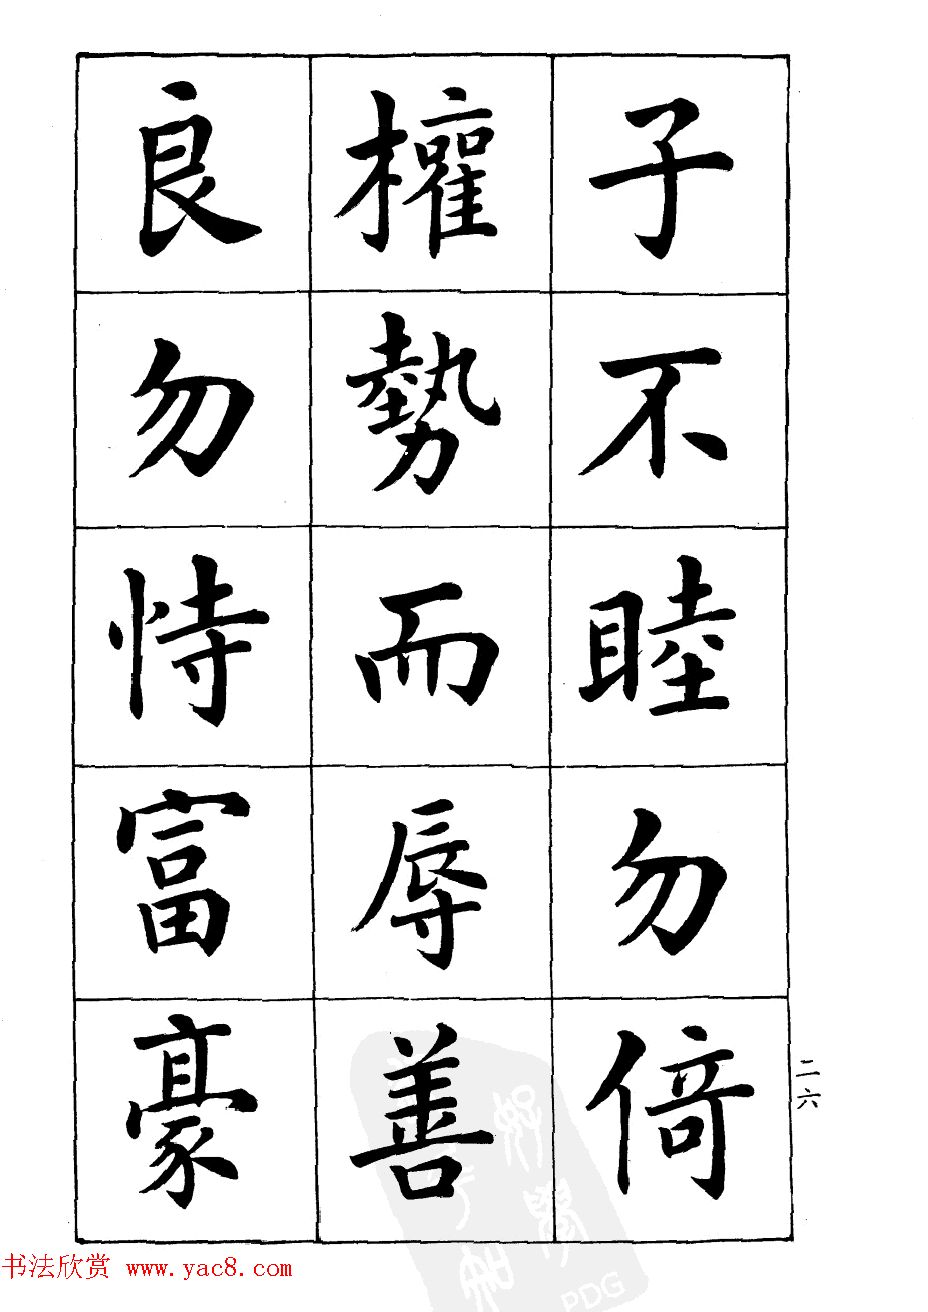 子不睦勿倚
權勢而辱善
良勿恃富豪
二六
书法欣赏 www.yac8.com
PDG